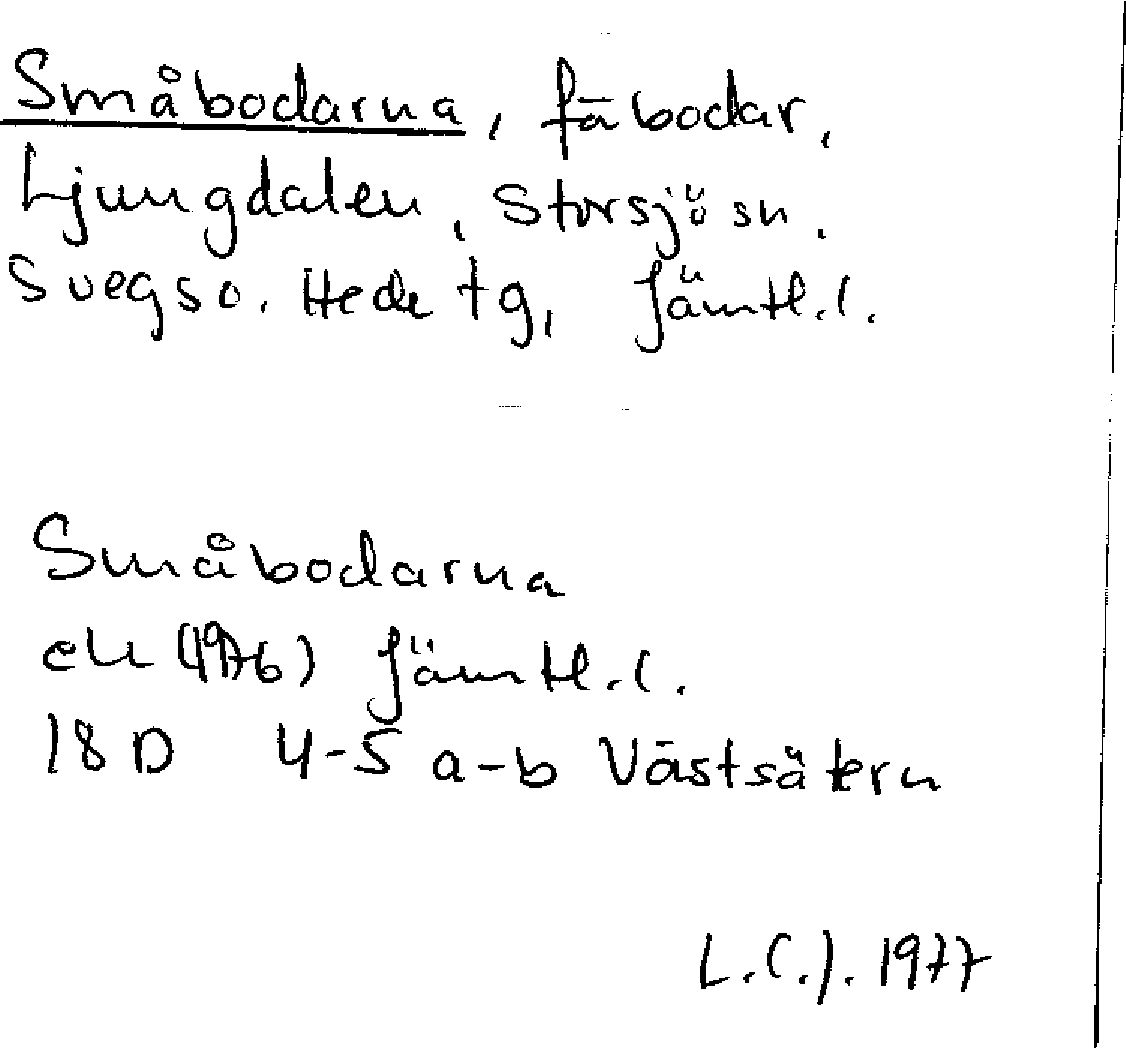 Småbodarna, fäbodar,
Ljungdalen, Storsjö sn.
Svegs o. Hede tg, Jämtl.l.
Småbodarna
ek (1976) Jämtl.l.
18 D 4-5 a-b Västsätern
L.C.J. 1977